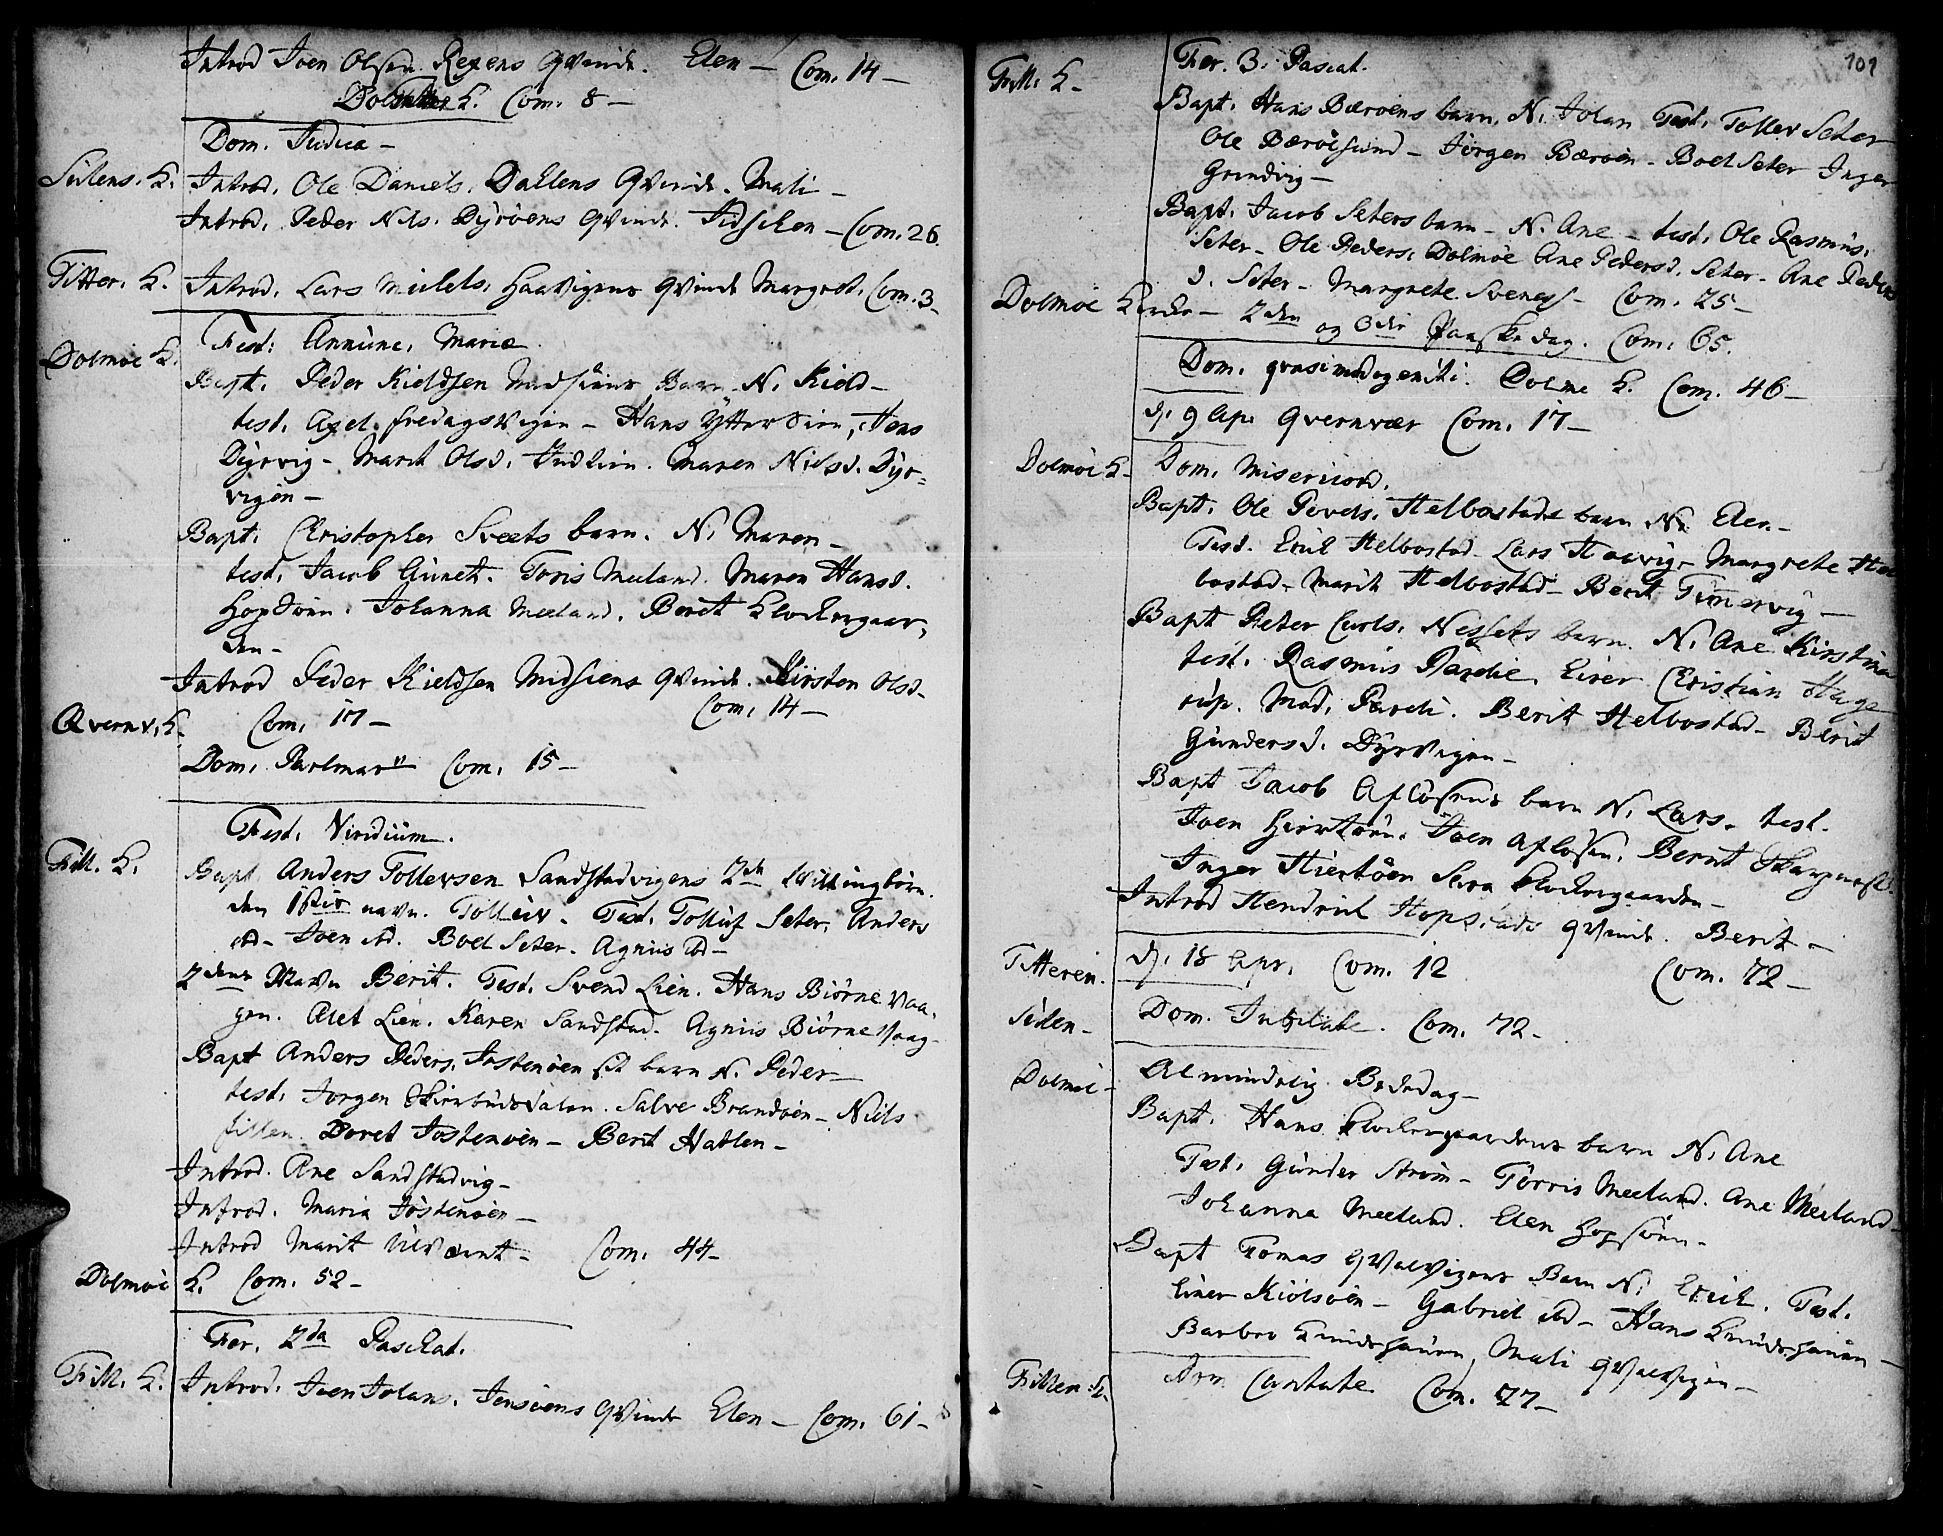 Introd Joen Olsen Rexens Qvinde. Elen – Com. 14 –
Dolmøe K. Com. 8 –
Dom. Judica –
Sulens. K. Introd. Ole Daniels. Dallens Qvinde. Mali –
Introd. Peder Nils. Dyrøens Qvinde. Fidschen – Com. 26.
Titter. K. Introd. Lars Michels. Haavigens Qvinde Margret. Com. 3 –
Fest: Annunc. Mariæ.
Dolmøe K. Bapt. Peder Kieldsen Midsiens Barn N. Kield –
test. Axel fredagsvigen – Hans Ytter, Hans
Dyrvig – Marit Olsd. Maren Nielsd. Dyr=
vigen –
Bapt. Christopher Sveets barn. N. Maren –
test. Jacob. Toris Meeland. Maren Hansd.
Hopsøen. Johanna Meeland. Beret Klockergaar,
den –
Introd Peder Kieldsen Midsiens Qvinde. Kirsten Olsd –
Com. 14 –
Qvernv. K. Com. 17 –
Dom. Palmar" Com. 15 –
Fest. Viridium.
Fill. K. Bapt. Anders Tollevsen Sandstadvigens 2de tvillingbørn.
den 1ste navn. Tollev. Test. Tolluf Seter. Anders
ibd – Joen ibd. Boel Seter. Agnis ibd –
2dens Navn Berit. Test. Svend Lien. Hans Biørnevaa,
gen. Alet Lien. Karen Sandstad. Agnis Biørnevaag –
Bapt Anders Peders. Jøstenøen sit barn N. Peder –
test. Jørgen Skiærbudsdalen. Salve Brandøen – Niels
fillen. Doret Jøstenøen – Berit Hatlen –
Introd. Ane Sandstadvig –
Introd. Maria Jøstenøen –
Introd Marit Ulvæernt – Com. 44 –
Dolmøe K. Com. 52 –
Fer. 2da Paschat.
Fill. K. Introd. Joen Johans. Jensøens Qvinde Elen – Com. 61 –
101
Fill. K – Fer. 3. Pascat.
Bapt. Hans Bærøens barn. N. Johan Test. Tollev Seter
Ole Bærøesund – Jørgen Bærøen – Boel Seter Inger
Grindvig –
Bapt. Jacob Seters barn – N. Ane – test. Ole Rasmus.
Seter – Ole Peders. Dolmøe Ane Pedersd. Seter – Ane Peders
d. Seter – Margrete Svends – Com. 25 –
Dolmøe Kirke – 2den og 3die Paaske dag. Com. 65.
Dom. quasimodogeniti. Dolmø K. Com. 46 –
d. 9 Ap. Qvernvær Com. 17 –
Dolmøe K – Dom. Misericord.
Bapt. Ole Povels. Helbostads barn N. Elen –
Test. Erik Helbostad – Lars Haavig – Margrete Hel
bostad – Marit Helbostad – Berit Timervig –
Bapt Peter Carls. Nessets barn. N. Ane Kirstina
test. Rasmus Parelie. Eirer Christian Hage
rup. Mad. Pareli. Berit Helbostad – Berit
Gundersd. Dyrvigen –
Bapt Jacob Afløsens barn N. Lars – test.
Joen Hiertøen. Joen Afløsen. Bernt
Inger Hiertøen Sara Klockergaarden –
Introd Hendrich Hopstads Qvinde. Berit –
Com. 72 –
Titteren. d. 18 Apr. Com. 12
Sulen – Dom. Jubilate. Com. 72 –
Dolmøe – Almindelig Bededag –
Bapt. Hans Klockergaardens barn N. Ane
Test. Gunder Strøm – Törris Meeland. Ane Meeland –
Johanna Meeland. Elen Hopsøen –
Bapt Tomas Qvalvigens Barn N. Erich. Test.
Einer Kiölsøen – Gabriel ibd – Hans Knudshauen –
Barbro Knudshauen, Mali Qvalvigen –
Fillen K. Dom Cantate Com. 77 –